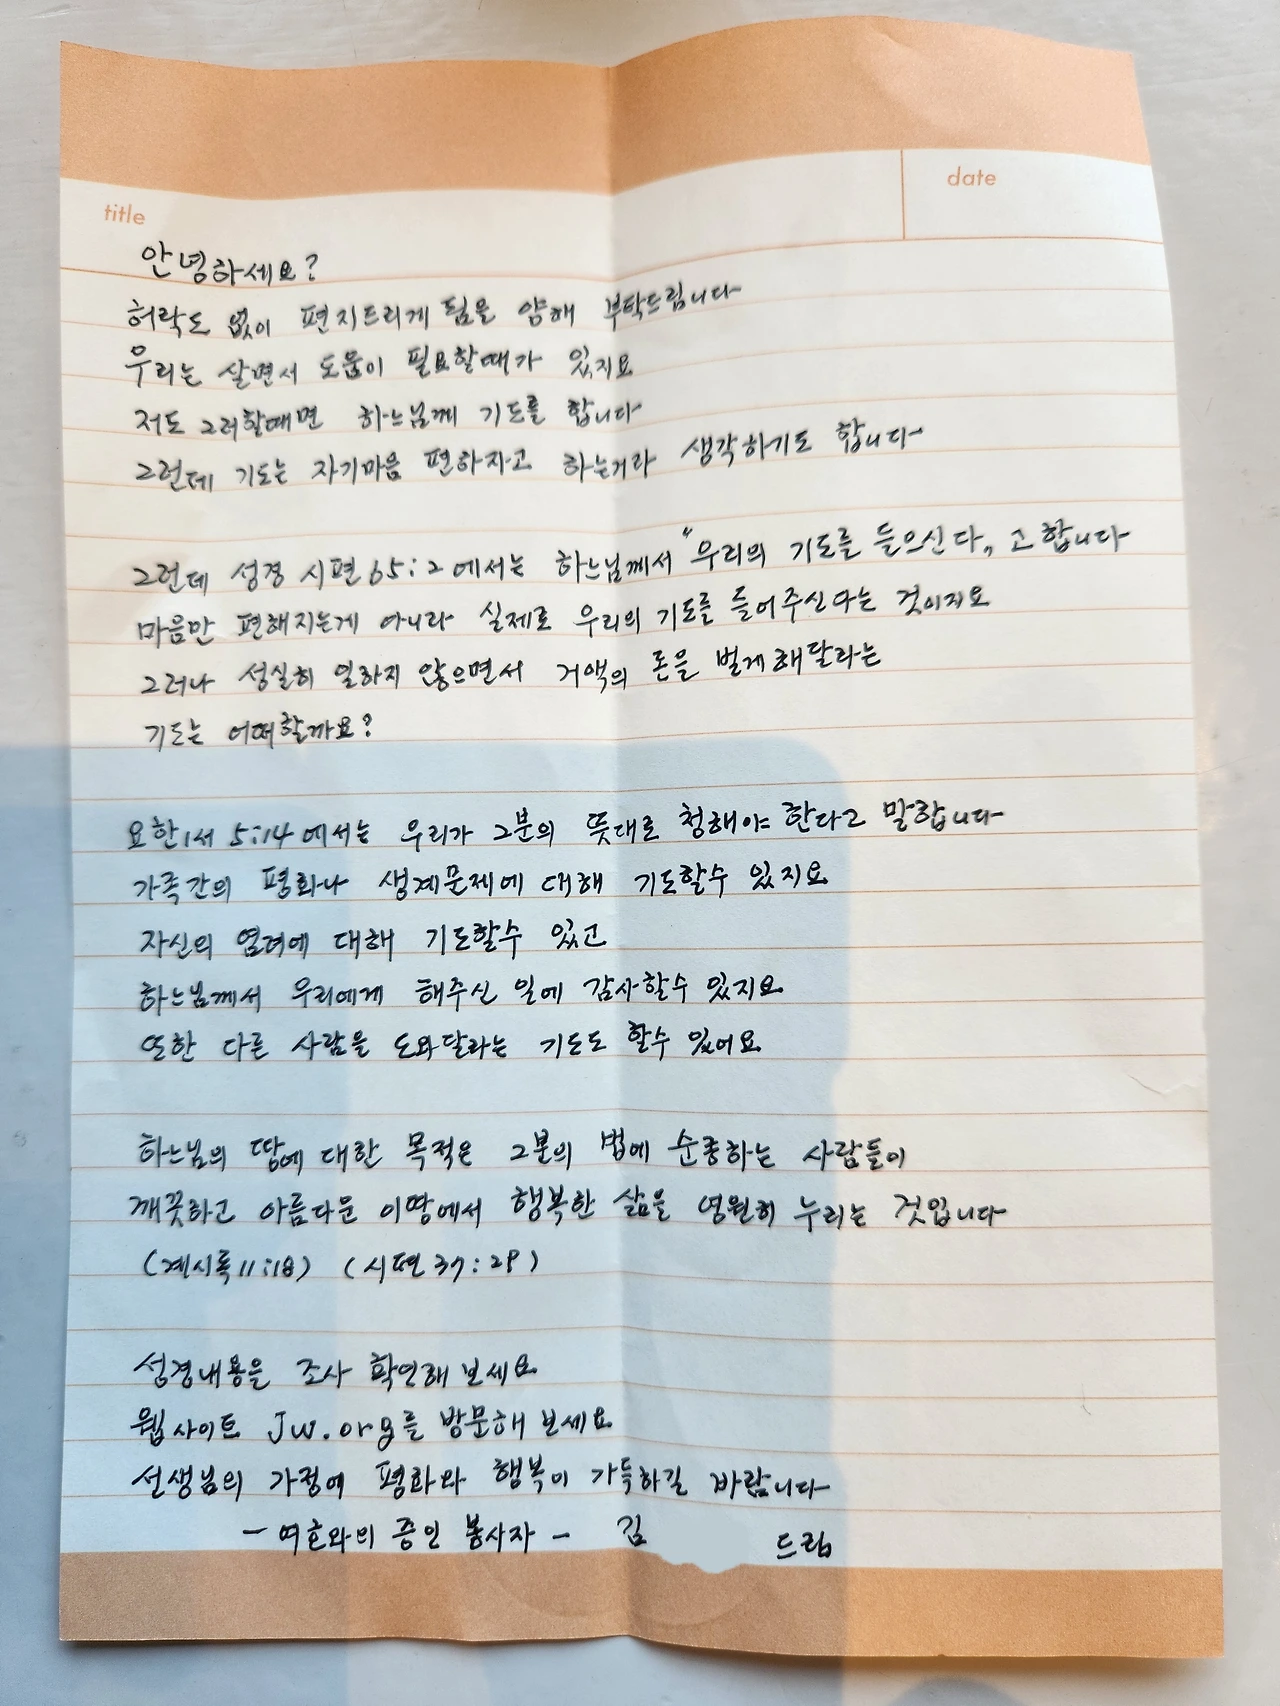 title
date
안녕하세요?
허락도 없이 편지드리게 됨을 양해 부탁드립니다
우리는 살면서 도움이 필요할때가 있지요
저도 그러할때면 하느님께 기도를 합니다
그런데 기도는 자기마음 편하자고 하는거라 생각하기도 합니다
그런데 성경 시편 65:2 에서는 하느님께서 "우리의 기도를 들으신다„ 고 합니다
마음만 편해지는게 아니라 실제로 우리의 기도를 들어주신다는 것이지요
그러나 성실히 일하지 않으면서 거액의 돈을 벌게해달라는
기도는 어떠할까요?
요한1서 5:14 에서는 우리가 그분의 뜻대로 청해야 한다고 말합니다
가족간의 평화나 생계문제에 대해 기도할수 있지요
자신의 염려에 대해 기도할수 있고
하느님께서 우리에게 해주신 일에 감사할수 있지요
또한 다른 사람을 도와달라는 기도도 할수 있어요
하느님의 땅에 대한 목적은 그분의 법에 순종하는 사람들이
깨끗하고 아름다운 이땅에서 행복한 삶을 영원히 누리는 것입니다
(계시록 11:18) (시편 37:29)
성경내용을 조사 확인해 보세요
웹사이트 Jw.org를 방문해 보세요
선생님의 가정에 평화와 행복이 가득하길 바랍니다
- 여호와의 증인 봉사자 - 김 드림